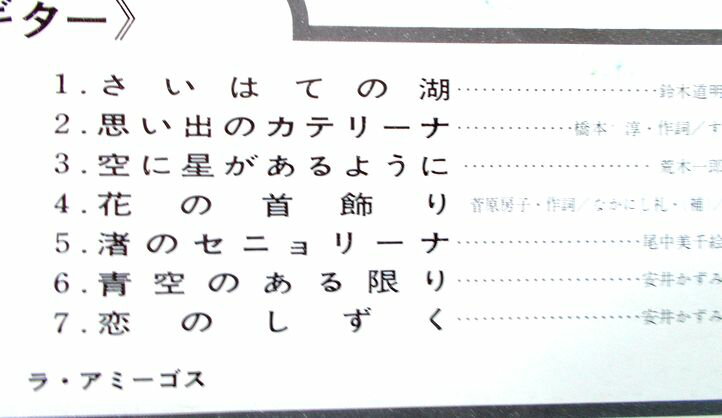 ギター》
1. さいはての湖……………………鈴木道明
2. 思い出のカテリーナ…………橋本 淳・作詞/す
3. 空に星があるように…………………荒木一郎
4. 花の首飾り 菅原房子・作詞/なかにし礼・補/
5. 渚のセニョリーナ…………………尾中美千絵
6. 青空のある限り…………………安井かずみ
7. 恋のしずく…………………安井かずみ
ラ・アミーゴス